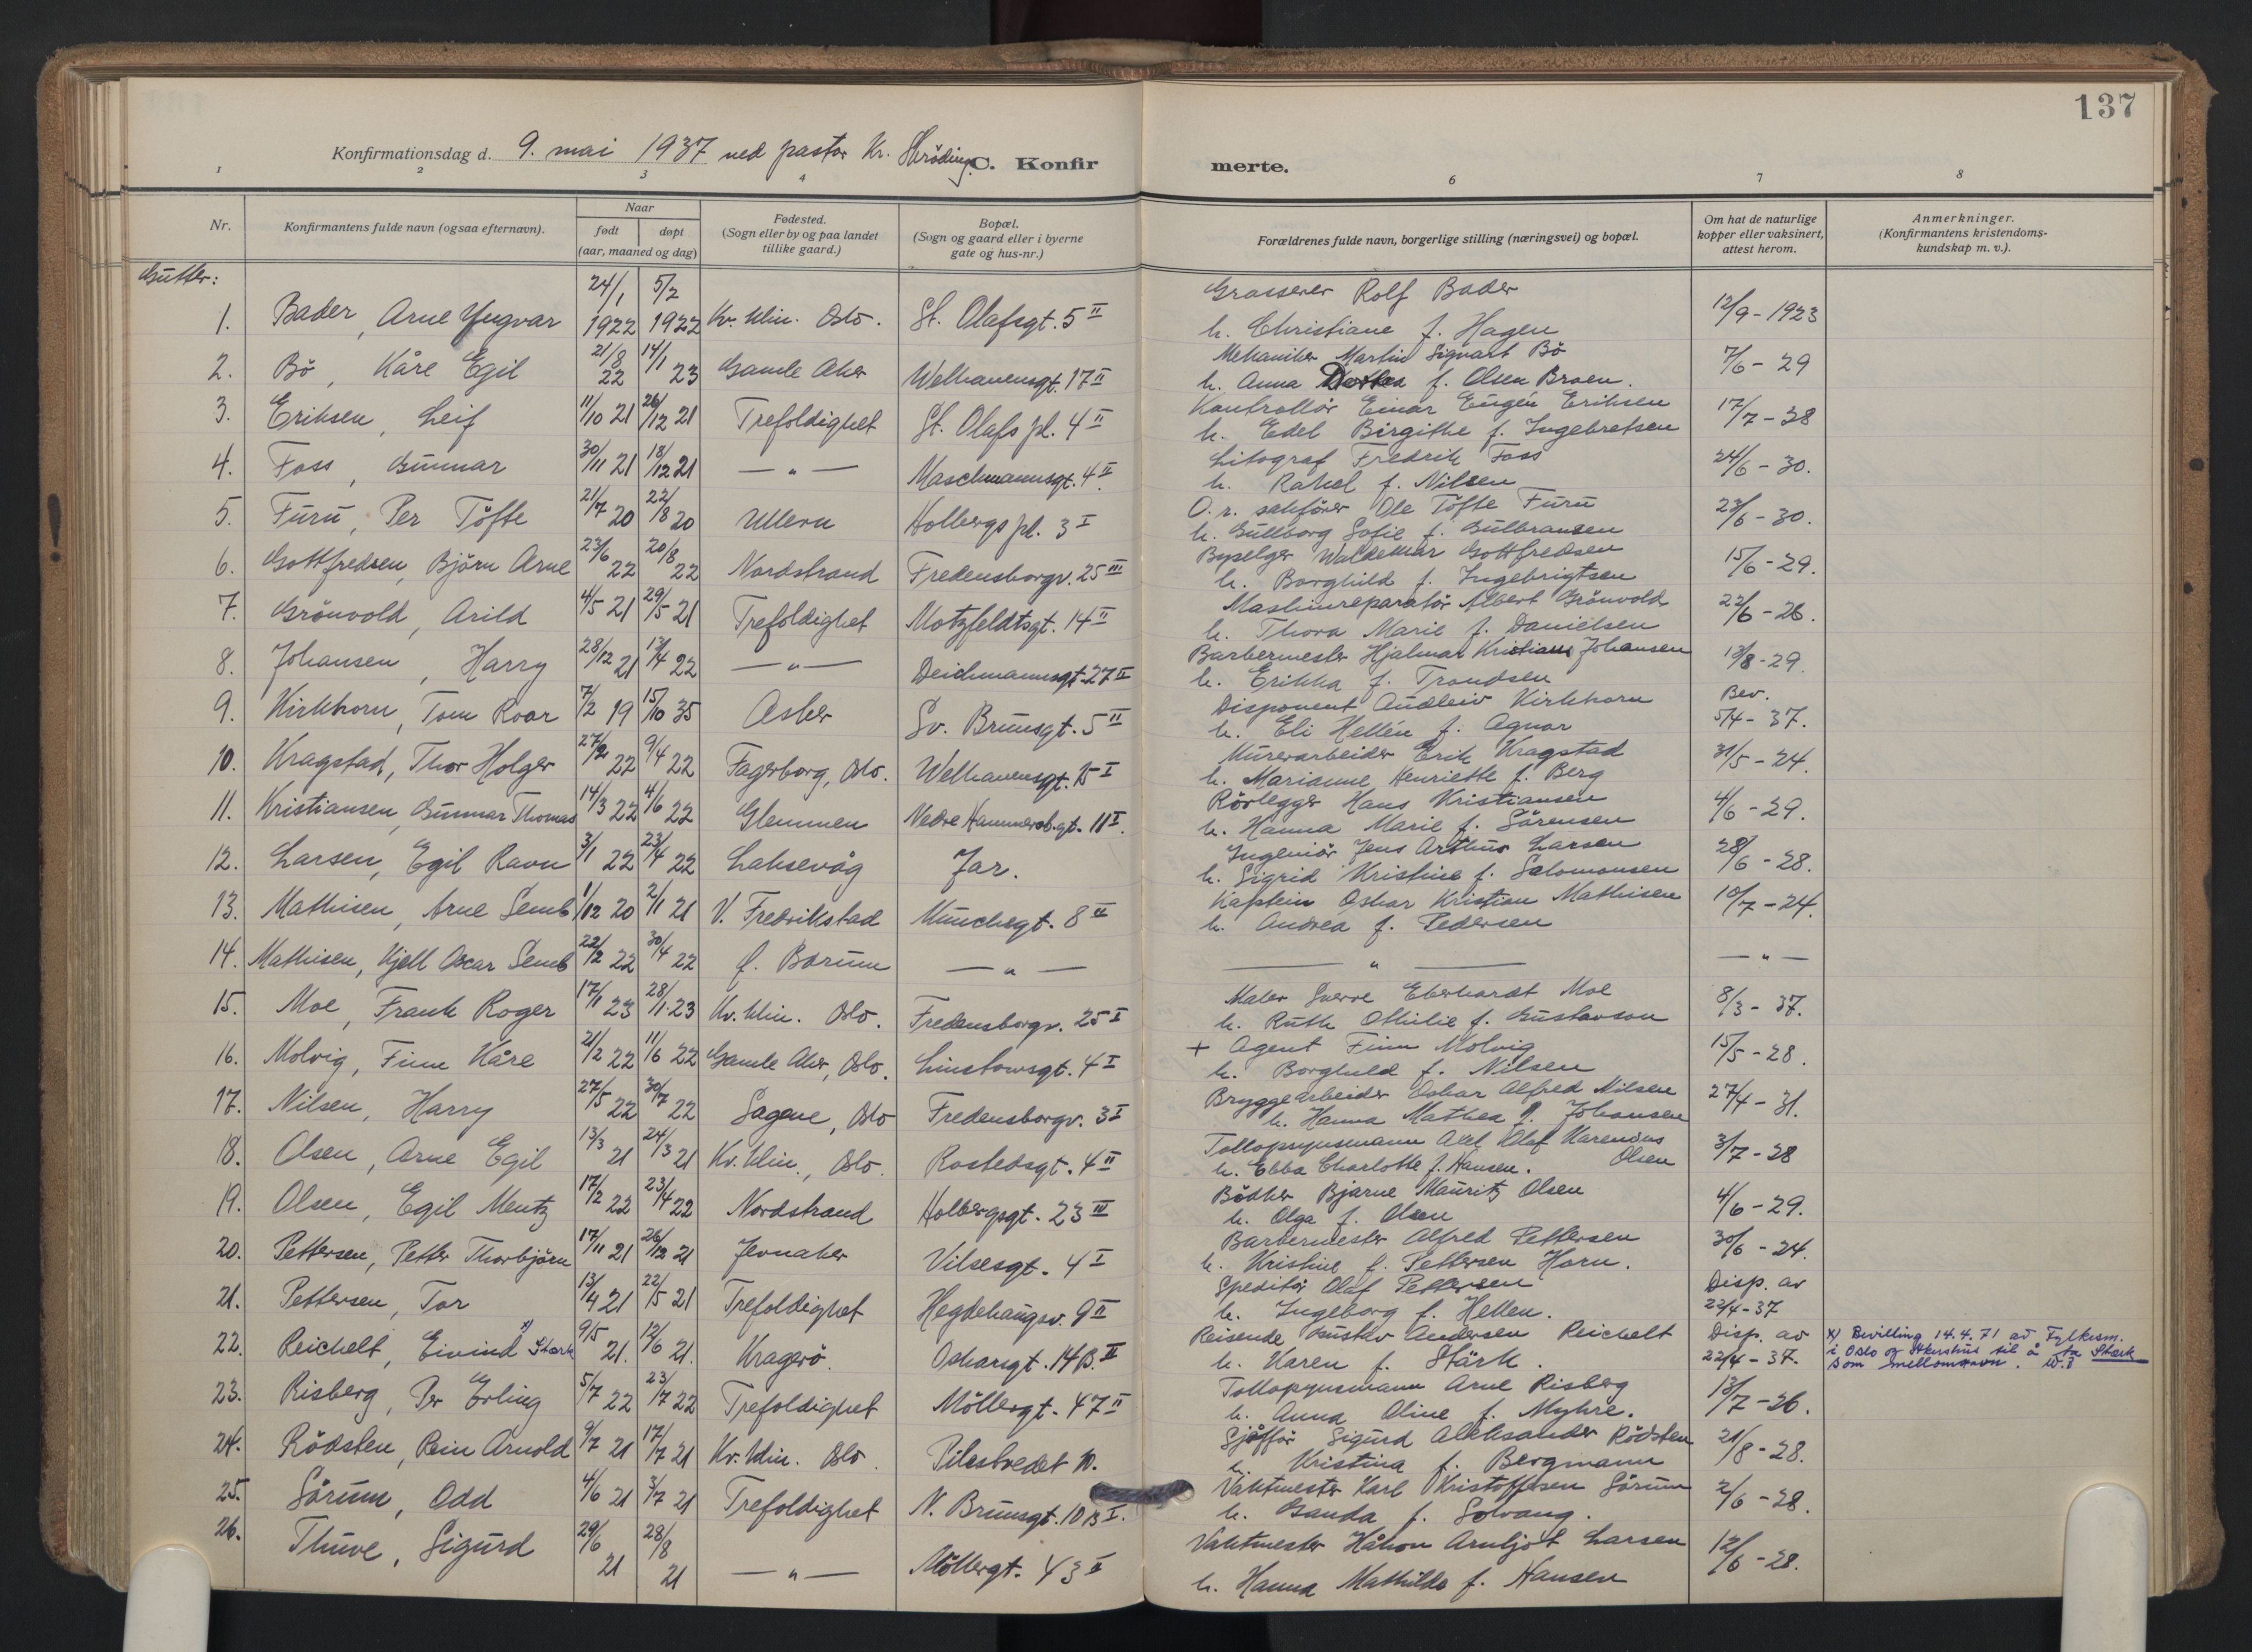 137
Konfirmationsdag d. 9. mai 1937 ved pastor Kr.
C. Konfirmerte.
1 2 3 4 6 7 8
Nr. Konfirmantens fulde navn (ogsaa efternavn). Naar født døpt (aar, maaned og dag) Fødested. (Sogn eller by og paa landet tillike gaard.) Bopæl. (Sogn og gaard eller i byerne gate og hus-nr.) Forældrenes fulde navn, borgerlige stilling (næringsvei) og bopæl. Om hat de naturlige kopper eller vaksinert, attest herom. Anmerkninger. (Konfirmantens kristendomskundskap m. v.).
Gutter:
1. Bader, Arne Yngvar 24/1 1922 5/2 1922 Kv. klin. Oslo. St. Olafsgt. 5 II Grosserer Rolf Bader 12/9 - 1923
h. Christiane f. Hagen
2. Bö, Kåre Egil 21/8 22 14/1 23 Gamle Aker Welhavensgt. 17 II Mekaniker Martin Sigvart Bö 7/6 - 29
h. Anna Dorthea f. Olsen Braen.
3. Eriksen, Leif 11/10 21 26/12 21 Trefoldighet St. Olafs pl. 4 II Kontrollör Einar Eugén Eriksen 17/7 - 38
h. Edel Birgithe f. Ingebretsen
4. Foss, Gunnar 30/11 21 18/12 21 — " — Maschmannsgt. 4 II Litograf Fredrik Foss 24/6 - 30.
h. Rakel f. Nilsen
5. Furu, Per Töfte 21/7 20 22/8 20 Ullern Holbergs pl. 3 I O. r. sakförer Ole Töfte Furu 23/6 - 30.
h. Gullborg Sofie f. Gulbransen
6. Gottfredsen, Björn Arne 23/6 22 20/8 22 Nordstrand Fredensborgv. 25 III Byselger Waldemar Gottfredsen 15/6 - 29.
h. Borghild f. Ingebrigtsen
7. Grönvold, Arild 4/5 21 29/5 21 Trefoldighet Motzfeldtsgt. 14 II Maskinreparatör Albert Grönvold 22/6 - 26.
h. Thora Marie f. Danielsen
8. Johansen, Harry 28/12 21 13/4 22 — " — Deichmannsgt. 27 II Barbermester Hjalmar Kristians Johansen 13/8 - 29.
h. Erikka f. Trondsen
9. Kirkhorn, Tom Roar 7/2 19 15/10 35 Asker Sv. Brunsgt. 5 II Disponent Audleiv Kirkhorn Bev. 5/4 - 37.
h. Eli Hellén f. Agnor
10. Kragstad, Thor Holger 27/2 22 9/4 22 Fagerborg, Oslo. Welhavensgt. 15 I Murerarbeider Erik Kragstad 31/5 - 24.
h. Marianne Henriette f. Berg
11. Kristiansen, Gunnar Thomas 14/3 22 4/6 22 Glemmen Nedre Hammersb.gt. 11 I. Rörlegger Hans Kristiansen 4/6 - 29.
h. Hanna Marie f. Sörensen
12. Larsen, Egil Ravn 3/1 22 23/4 22 Laksevåg Jar. Ingeniör Jens Arthur Larsen 28/6 - 28.
h. Sigrid Kristine f. Salomonsen
13. Mathisen, Arne Semb 1/12 20 2/1 21 V. Fredrikstad Munchsgt. 8 II Kaptein Oskar Kristian Mathisen 10/7 - 24.
h. Andrea f. Pedersen
14. Mathisen, Kjell Oscar Semb 22/2 22 30/4 22 f. Borum — " — — " — — " —
15. Moe, Frank Roger 17/1 23 28/1 23 Kv. klin. Oslo. Fredensborgv. 25 I Maler Sverre Eberhardt Moe 8/3 - 37.
h. Ruth Othilie f. Gustavson
16. Molvig, Finn Kåre 21/2 22 11/6 22 Gamle Aker, Oslo. Linstowsgt. 4 I + Agent Finn Molvig 15/5 - 28.
h. Borghild f. Nilsen
17. Nilsen, Harry 27/5 22 30/7 22 Sagene, Oslo Fredensborgv. 3 I Bryggearbeider Oskar Alfred Nilsen 27/4 - 31.
h. Hanna Mathea f. Johansen
18. Olsen, Arne Egil 13/3 21 24/3 21 Kv. klin., Oslo. Rostedsgt. 4 II Tollopsynsmann Axel Olaf Karenius Olsen 3/7 - 28
h. Ebba Charlotte f. Hansen.
19. Olsen, Egil Mentz 17/2 22 23/4 22 Nordstrand Holbergsgt. 23 III Bödker Bjarne Mauritz Olsen 4/6 - 29.
h. Olga f. Olsen
20. Pettersen, Petter Thorbjörn 17/11 21 26/12 21 Jevnaker Vilsesgt. 4 I Barbermester Alfred Pettersen 30/6 - 24.
h. Kristine f. Pettersen Horn.
21. Pettersen, Tor 13/4 21 22/5 21 Trefoldighet Hegdehaugsv. 9 II Speditör Olaf Pettersen Disp. av 22/4 - 37
h. Ingeborg f. Hellen.
22. Reichelt, Eivind x) Stærk 9/5 21. 12/6 21. Kragerö. Oskarsgt. 14 B. II Reisende Gustav Andersen Reichelt Disp. av 22/4 - 37. x) Bevilling 14.4.71 av Fylkesm. i Oslo og Akershus til å ta Stærk som mellomnavn.
h. Karen f. Stärk.
23. Risberg, Per Erling 5/7 22 23/7 22 Trefoldighet Möllergt. 47 II Tollopsynsmann Arne Risberg 13/7 - 26.
h. Anna Oline f. Myhre.
24. Rödsten, Rein Arnold 9/7 21 17/7 21 Kv. klin. Oslo. Pilestredet 10. Sjåfför Sigurd Aleksander Rödsten 21/8 - 28.
h. Kristina f. Bergmann
25. Sörum, Odd 4/6 21 3/7 21 Trefoldighet N. Brunsgt. 10 B I. Vaktmester Karl Kristoffesen Sörum 2/6 - 28.
h. Ganda f. Solvang.
26. Thuve, Sigurd 29/6 21 28/8 21 — " — Möllergt. 43 II Vaktmester Håkon Arnljot Larsen 12/6 - 28.
h. Hanna Mathilde f. Hansen